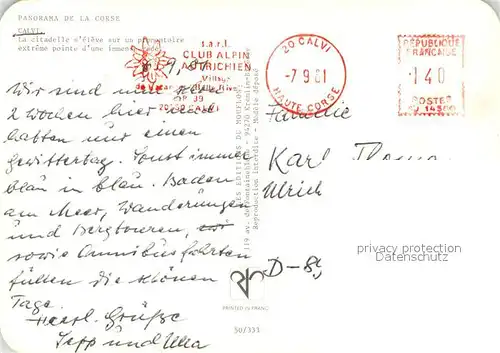 PANORAMA DE LA CORSE
CALVI.
La citadelle s'élève sur un promontoire
extrême pointe d'une immense
s.a.r.l.
CLUB ALPIN
AUTRICHIEN
20 CALVI
-7 9 81
HAUTE CORSE
RÉPUBLIQUE
FRANÇAISE
140
POSTES
Wir sind nun
2 Wochen hier
hatten nur einen
Gewittertag. Sonst immer
blau in blau. Baden
am Meer, Wanderungen
und Bergtouren,
sowie Omnibusfahrten
füllten die schönen
Tage.
Herzl. Grüße
Sepp und Ulla
Familie
Karl
Ulrich
D-8
LES EDITIONS DU MOUFLON
Reproduction interdite - Modèle déposé
PRINTED IN FRANCE
50/333
privacy protection
Datenschutz